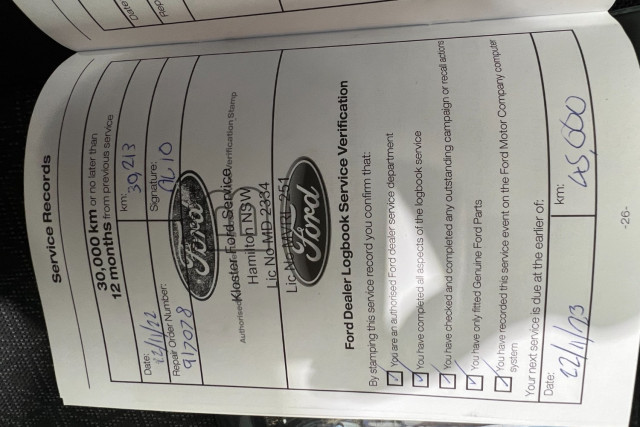 Date:
Rep
Service Records
30,000 km or no later than
12 months from previous service
Date: 22/11/22
km: 39213
Repair Order Number: 917078
Signature: AL10
Ford
Authorised Verification Stamp
Kloster Ford Service
Hamilton NSW
Lic No MD 2334
Lic No MVRL 251
Ford
Ford Dealer Logbook Service Verification
By stamping this service record you confirm that:
You are an authorised Ford dealer service department
You have completed all aspects of the logbook service
You have checked and completed any outstanding campaign or recall actions
You have only fitted Genuine Ford Parts
You have recorded this service event on the Ford Motor Company computer
system
Your next service is due at the earlier of:
Date: 22/11/23
km: 45,000
-26-